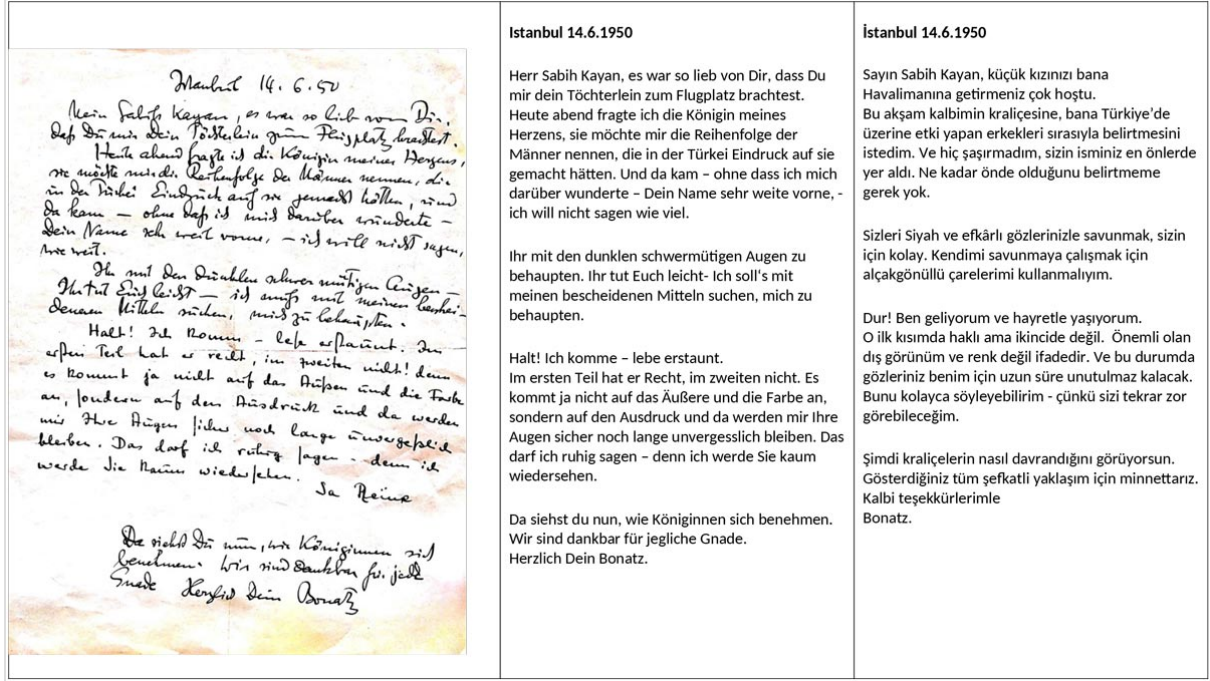 Istanbul 14.6.50
Mein Sabih Kayan, es war so lieb von Dir,
daß Du mir Dein Töchterlein zum Flugplatz brachtest.
Heute abend fragte ich die Königin meines Herzens,
sie möchte mir die Reihenfolge der Männer nennen, die
in der Türkei Eindruck auf sie gemacht hätten, und
da kam — ohne daß ich mich darüber wunderte —
Dein Name sehr weit vorne, — ich will nicht sagen,
wie weit.
Ihr mit den dunklen schwermütigen Augen —
Ihr tut Euch leicht — ich muß mit meinen beschei-
denen Mitteln suchen, mich zu behaupten.
Halt! Ich komm — lese erstaunt. Im
ersten Teil hat er recht, im zweiten nicht! denn
es kommt ja nicht auf das Äußere und die Farbe
an, sondern auf den Ausdruck und da werden
mir Ihre Augen sicher noch lange unvergeßlich
bleiben. Das darf ich ruhig sagen - denn ich
werde Sie kaum wiedersehen.
La Reine
Da siehst Du nun, wie Königinnen sich
benehmen. Wir sind dankbar für jede
Gnade Herzlich Dein Bonatz
Istanbul 14.6.1950
Herr Sabih Kayan, es war so lieb von Dir, dass Du
mir dein Töchterlein zum Flugplatz brachtest.
Heute abend fragte ich die Königin meines
Herzens, sie möchte mir die Reihenfolge der
Männer nennen, die in der Türkei Eindruck auf sie
gemacht hätten. Und da kam – ohne dass ich mich
darüber wunderte – Dein Name sehr weite vorne, -
ich will nicht sagen wie viel.
Ihr mit den dunklen schwermütigen Augen zu
behaupten. Ihr tut Euch leicht- Ich soll‘s mit
meinen bescheidenen Mitteln suchen, mich zu
behaupten.
Halt! Ich komme – lebe erstaunt.
Im ersten Teil hat er Recht, im zweiten nicht. Es
kommt ja nicht auf das Äußere und die Farbe an,
sondern auf den Ausdruck und da werden mir Ihre
Augen sicher noch lange unvergesslich bleiben. Das
darf ich ruhig sagen – denn ich werde Sie kaum
wiedersehen.
Da siehst du nun, wie Königinnen sich benehmen.
Wir sind dankbar für jegliche Gnade.
Herzlich Dein Bonatz.
İstanbul 14.6.1950
Sayın Sabih Kayan, küçük kızınızı bana
Havalimanına getirmeniz çok hoştu.
Bu akşam kalbimin kraliçesine, bana Türkiye’de
üzerine etki yapan erkekleri sırasıyla belirtmesini
istedim. Ve hiç şaşırmadım, sizin isminiz en önlerde
yer aldı. Ne kadar önde olduğunu belirtmeme
gerek yok.
Sizleri Siyah ve efkârlı gözlerinizle savunmak, sizin
için kolay. Kendimi savunmaya çalışmak için
alçakgönüllü çarelerimi kullanmalıyım.
Dur! Ben geliyorum ve hayretle yaşıyorum.
O ilk kısımda haklı ama ikincide değil. Önemli olan
dış görünüm ve renk değil ifadedir. Ve bu durumda
gözleriniz benim için uzun süre unutulmaz kalacak.
Bunu kolayca söyleyebilirim - çünkü sizi tekrar zor
görebileceğim.
Şimdi kraliçelerin nasıl davrandığını görüyorsun.
Gösterdiğiniz tüm şefkatli yaklaşım için minnettarız.
Kalbi teşekkürlerimle
Bonatz.